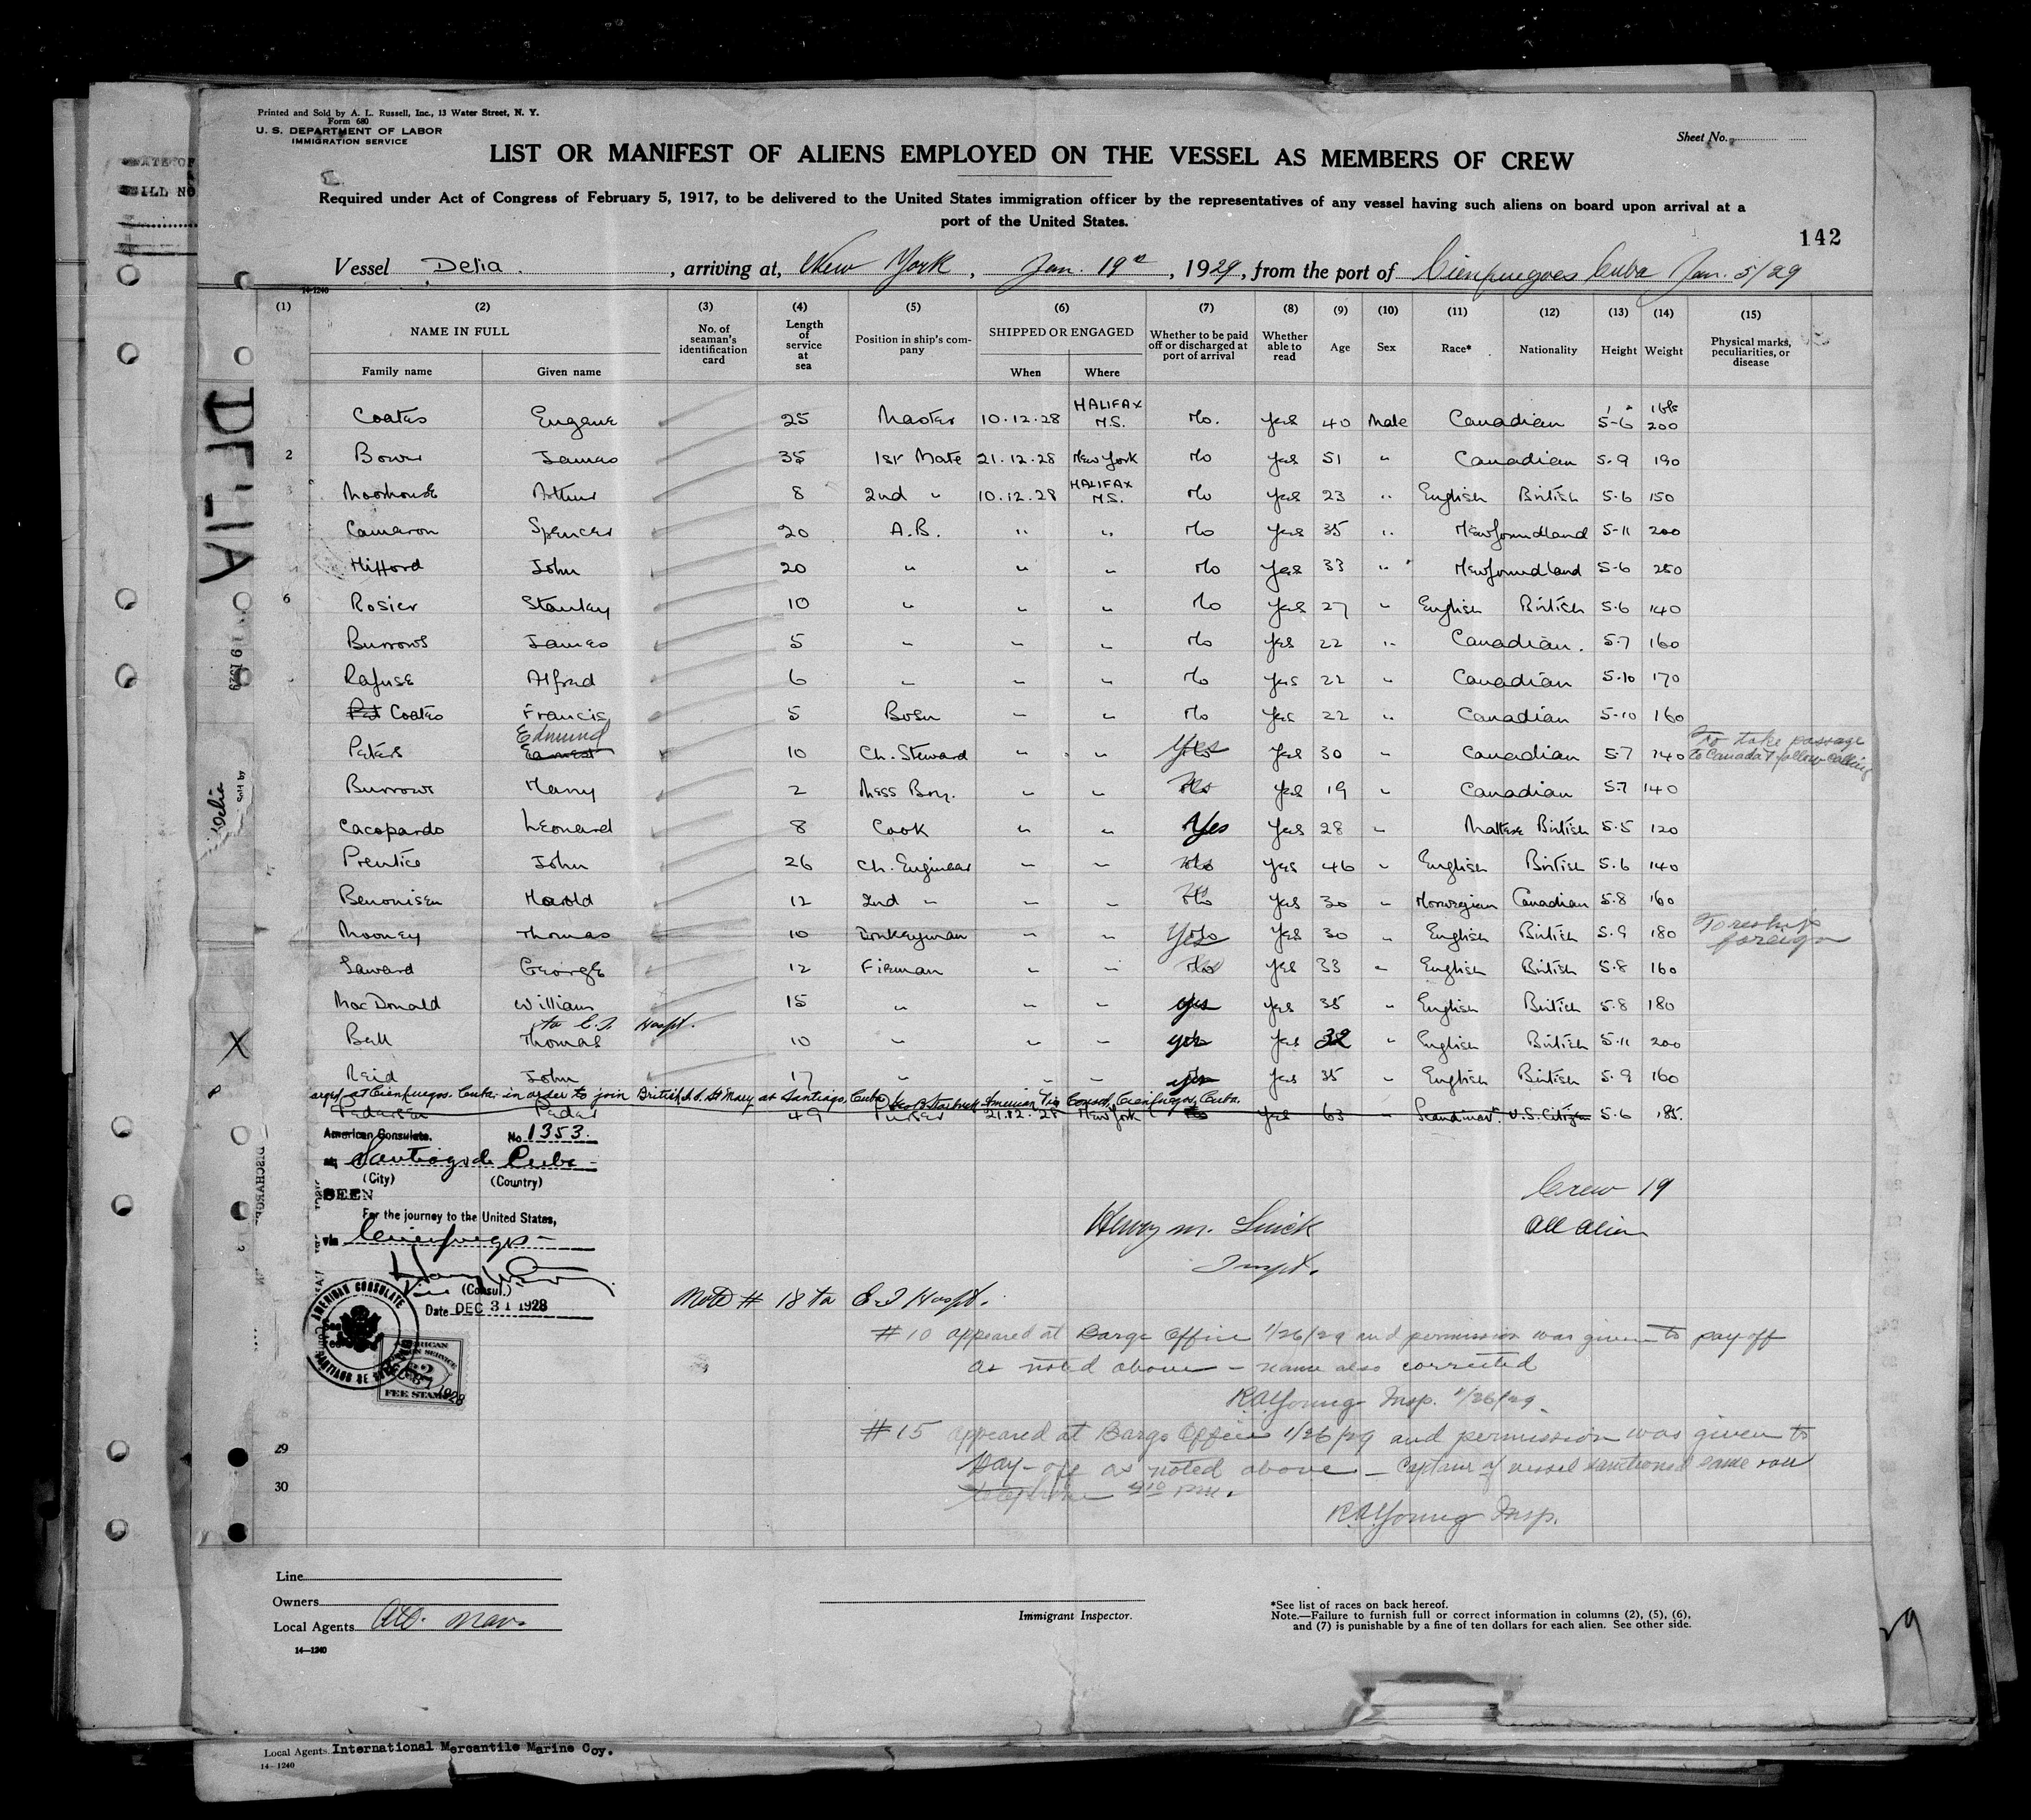 Printed and Sold by A. L. Russell, Inc., 13 Water Street, N. Y.
Form 680
U. S. DEPARTMENT OF LABOR
IMMIGRATION SERVICE
Sheet No.
LIST OR MANIFEST OF ALIENS EMPLOYED ON THE VESSEL AS MEMBERS OF CREW
Required under Act of Congress of February 5, 1917, to be delivered to the United States immigration officer by the representatives of any vessel having such aliens on board upon arrival at a
port of the United States.
142
Vessel Delia, arriving at, New York, Jan. 19th, 1929, from the port of Cienfuegoes Cuba Jan. 5/29
14-1240
(1) (2) (3) (4) (5) (6) (7) (8) (9) (10) (11) (12) (13) (14) (15)
NAME IN FULL Family name Given name
No. of seaman's identification card
Length of service at sea
Position in ship's company
SHIPPED OR ENGAGED When Where
Whether to be paid off or discharged at port of arrival
Whether able to read
Age Sex Race* Nationality Height Weight
Physical marks, peculiarities, or disease
DELIA
Coates Eugene 25 Master 10.12.28 HALIFAX N.S. No. Yes 40 Male Canadian 5-6 200
2 Bower James 35 1st Mate 21.12.28 New York No Yes 51 " Canadian 5-9 190
3 Moorhouse Arthur 8 2nd " 10.12.28 HALIFAX N.S. No Yes 23 " English British 5.6 150
Cameron Spencer 20 A.B. " " No Yes 35 " Newfoundland 5-11 200
Hifford John 20 " " " No Yes 33 " Newfoundland 5-6 250
6 Rosier Stanley 10 " " " No Yes 27 " English British 5.6 140
Burrows James 5 " " " No Yes 22 " Canadian. 5.7 160
Rafuse Alfred 6 " " " No Yes 22 " Canadian 5-10 170
Pet Coates Francis 5 Bosn " " No Yes 22 " Canadian 5-10 160
Edmund
Peters Earnest 10 Ch. Steward " " Yes Yes 30 " Canadian 5.7 140 To take passage to Canada & follow calling
Burrows Harry 2 Mess Boy. " " No Yes 19 " Canadian 5.7 140
Cacopardo Leonard 8 Cook " " Yes Yes 28 " Maltese British 5.5 120
Prentice John 26 Ch. Engineer " " No Yes 46 " English British 5.6 140
Benonisen Harold 12 2nd " " " No Yes 30 " Norwegian Canadian 5.8 160
Mooney Thomas 10 Donkeyman " " Yes Yes 30 " English British 5.9 180 To reship foreign
Laward George 12 Fireman " " No Yes 33 " English British 5.8 160
MacDonald William 15 " " " yes Yes 35 " English British 5.8 180
to E.I. Hospt.
X Bell Thomas 10 " " " yes Yes 32 " English British 5-11 200
Reid John 17 " " " yes Yes 35 " English British 5.9 160
at Cienfuegos, Cuba in order to join British S.S. St Mary at Santiago, Cuba American Vice Consul, Cienfuegos, Cuba.
Pedersen Peder 49 Purser 21.12.28 New York No Yes 63 " Scandinav. U.S. Citizen 5.6 185.
American Consulate. No. 1353.
at Santiago de Cuba
(City) (Country)
SEEN
For the journey to the United States,
via Cienfuegos
Vice (Consul.)
Date DEC 31 1928
AMERICAN CONSULATE SANTIAGO DE CUBA
FEE STAMP
Crew 19
All alien
Henry M. Linick
Inspt.
Note # 18 to E.I Hospt.
#10 appeared at Barge Office 1/26/29 and permission was given to pay off
as noted above – name also corrected
R.A. Young Insp. 1/26/29.
#15 appeared at Barge Office 1/26/29 and permission was given to
pay-off as noted above – Captain of vessel sanctioned same
telephone PM.
R.A. Young Insp.
29
30
Line
Owners
Local Agents
Immigrant Inspector.
*See list of races on back hereof.
Note.—Failure to furnish full or correct information in columns (2), (5), (6),
and (7) is punishable by a fine of ten dollars for each alien. See other side.
14—1240
Local Agents International Mercantile Marine Coy.
14-1240